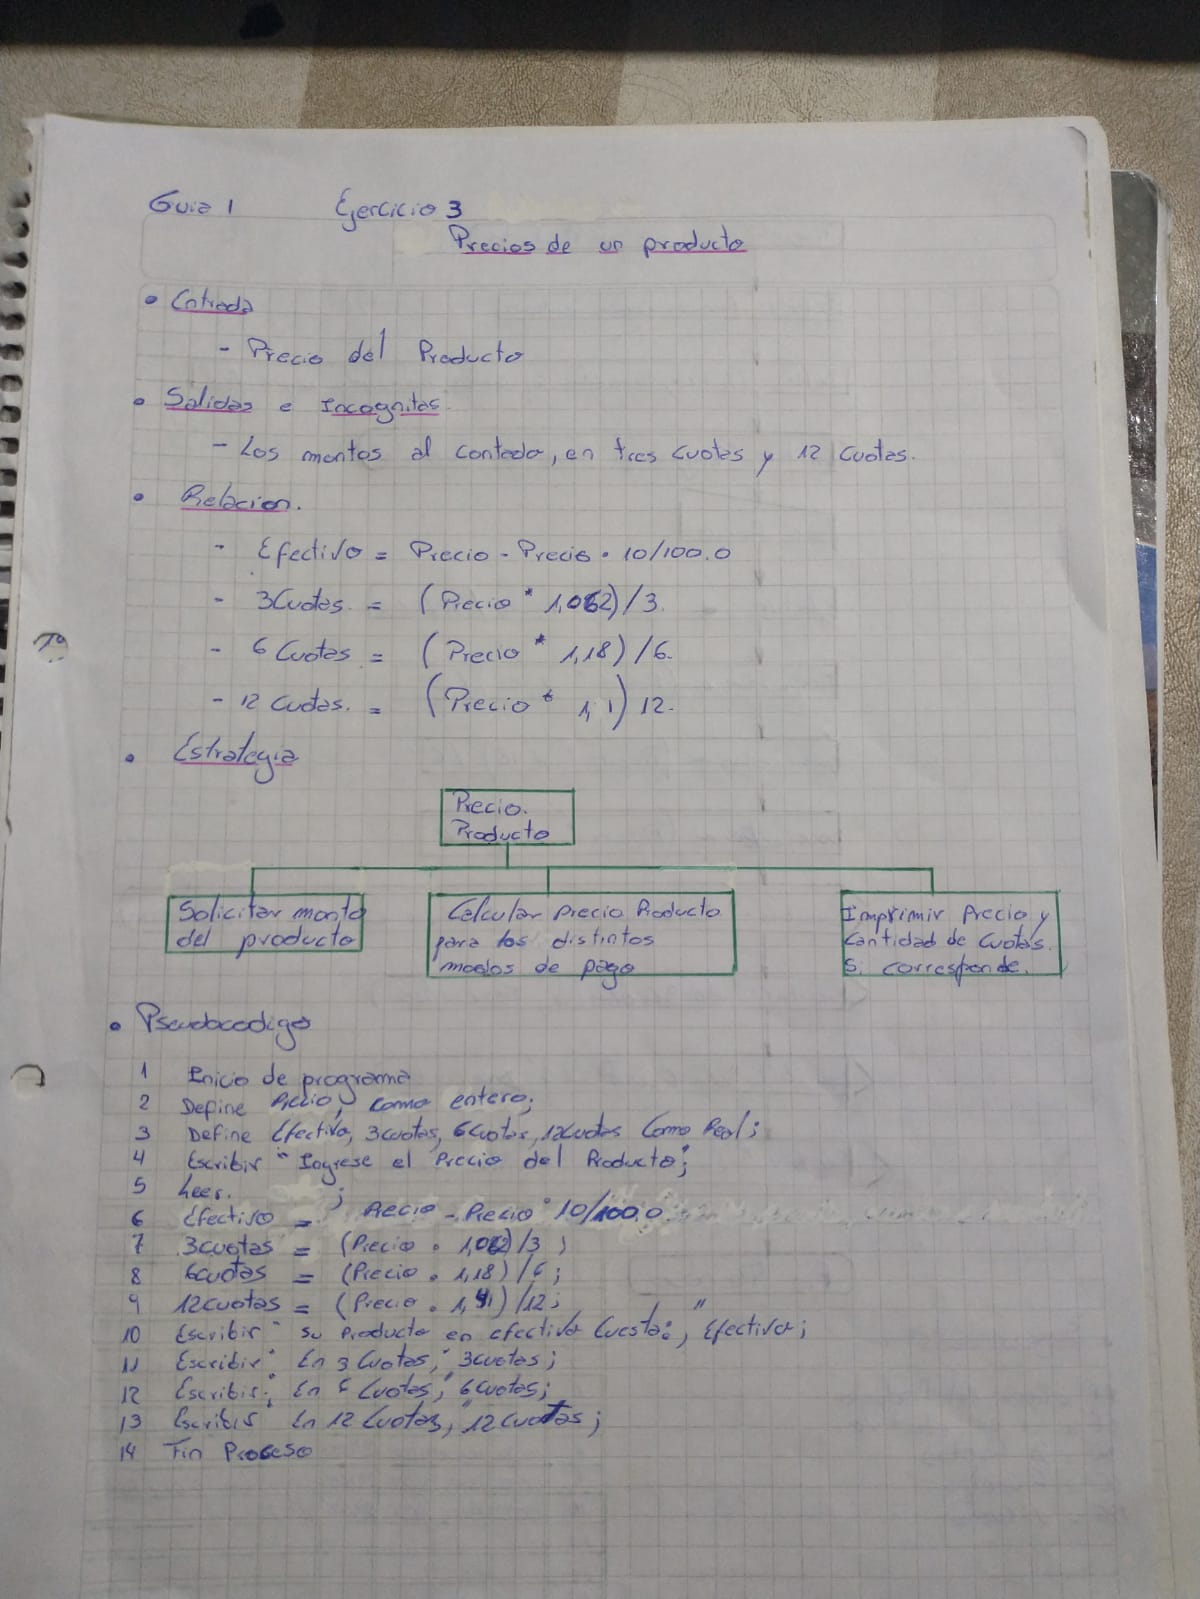 Guia 1 Ejercicio 3
Precios de un producto
• Entrada
- Precio del Producto
• Salidas e Incognitas.
- Los montos al contado, en tres cuotas y 12 cuotas.
• Relacion.
- Efectivo = Precio - Precio * 10/100.0
- 3Cuotas. = (Precio * 1,062)/3.
- 6 Cuotas = (Precio * 1,18)/6.
- 12 Cuotas. = (Precio * 1,1) 12.
• Estrategia
Precio.
Producto
Solicitar monto
del producto
Calcular Precio Producto
para los distintos
modos de pago
Imprimir Precio y
Cantidad de Cuotas.
Si corresponde.
• Pseudocodigo
1 Inicio de programa
2 Define Precio, como entero;
3 Define Efectivo, 3cuotas, 6cuotas, 12cuotas Como Real;
4 Escribir "Ingrese el Precio del Producto";
5 Leer. ;
6 Efectivo = Precio - Precio * 10/100.0
7 3cuotas = (Precio * 1,062)/3;
8 6cuotas = (Precio * 1,18)/6;
9 12cuotas = (Precio * )/12;
10 Escribir "su Producto en efectivo Cuesta:", Efectivo;
11 Escribir "En 3 Cuotas," 3cuotas;
12 Escribir "En 6 Cuotas," 6cuotas;
13 Escribir "En 12 Cuotas," 12cuotas;
14 Fin Proceso